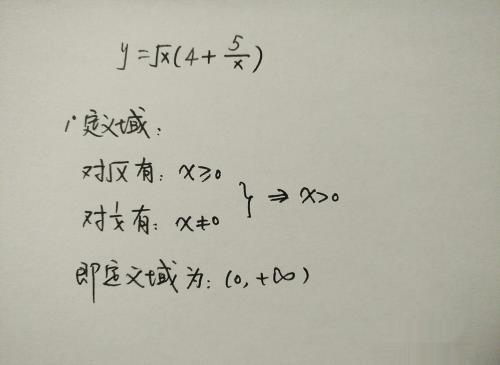 y=√x(4+5/x)
1° 定义域：
对√x有：x≥0
对1/x有：x≠0 } ⇒ x>0
即定义域为：(0,+∞)